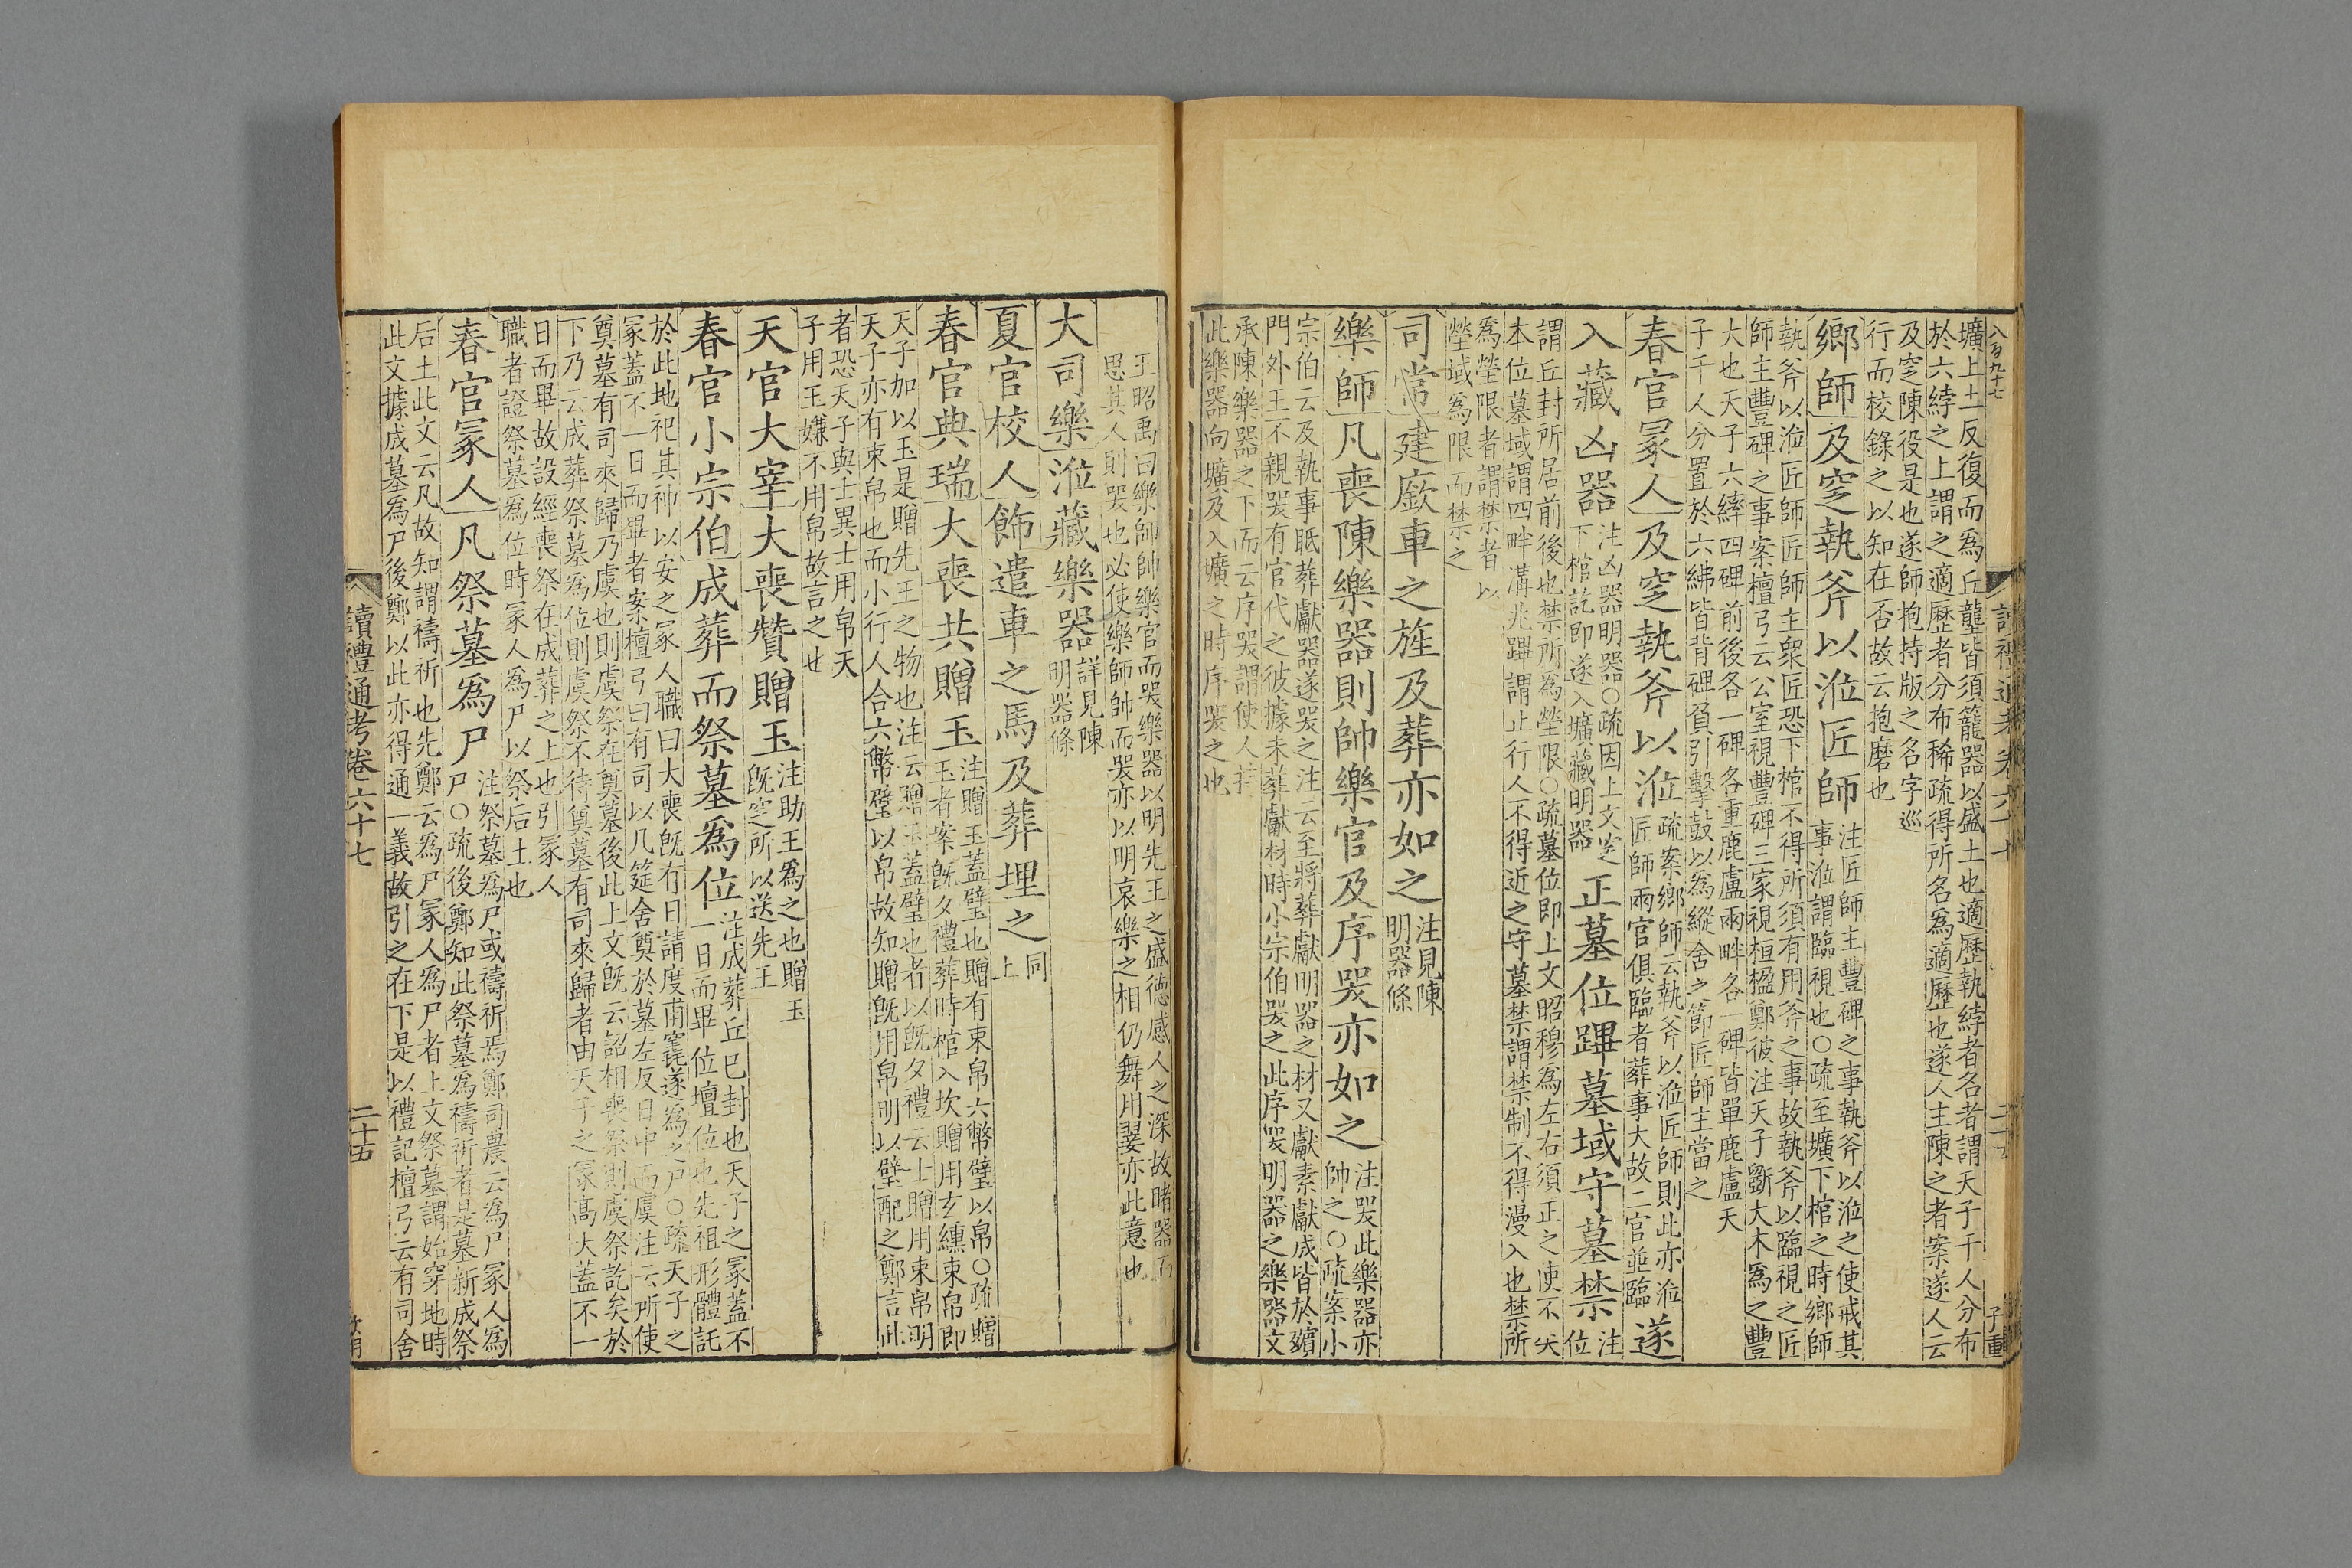 八百九十七
壙上土反復而爲丘壟皆須籠器以盛土也適歷執綍者名者謂天子千人分布
於六綍之上謂之適歷者分布稀疏得所名爲適歷也遂人主陳之者案遂人云
及窆陳役是也遂師抱持版之名字巡
行而校錄之以知在否故云抱磨也
鄉師及窆執斧以涖匠師注匠師主豐碑之事執斧以涖之使戒其
事涖謂臨視也○疏至壙下棺之時鄉師
執斧以涖匠師匠師主衆匠恐下棺不得所須有用斧之事故執斧以臨視之匠
師主豐碑之事案檀弓云公室視豐碑三家視桓楹鄭彼注天子斲大木爲之豐
大也天子六繂四碑前後各一碑各重鹿盧兩畔各一碑皆單鹿盧天
子千人分置於六紼皆背碑負引擊鼓以爲縱舍之節匠師主當之
春官冢人及窆執斧以涖疏案鄉師云執斧以涖匠師則此亦涖
匠師兩官俱臨者葬事大故二官並臨遂
入藏凶器注凶器明器○疏因上文窆
下棺訖即遂入壙藏明器正墓位蹕墓域守墓禁注
位
謂丘封所居前後也禁所爲塋限○疏墓位即上文昭穆爲左右須正之使不失
本位墓域謂四畔溝兆蹕謂止行人不得近之守墓禁謂禁制不得漫入也禁所
爲塋限者謂禁者以
塋域爲限而禁之
司常建廞車之旌及葬亦如之注見陳
明器條
樂師凡喪陳樂器則帥樂官及序哭亦如之注哭此樂器亦
帥之○疏案小
宗伯云及執事眡葬獻器遂哭之注云至將葬獻明器之材又獻素獻成皆於殯
門外王不親哭有官代之彼據未葬獻材時小宗伯哭之此序哭明器之樂器文
承陳樂器之下而云序哭謂使人持
此樂器向壙及入壙之時序哭之也
王昭禹曰樂師帥樂官而哭樂器以明先王之盛德感人之深故睹器而
思其人則哭也必使樂師帥而哭亦以明哀樂之相仍舞用翣亦此意也
大司樂涖藏樂器詳見陳
明器條
夏官校人飾遣車之馬及葬埋之同
上
春官典瑞大喪共贈玉注贈玉蓋璧也贈有束帛六幣璧以帛○疏贈
玉者案旣夕禮葬時棺入坎贈用玄纁束帛即
天子加以玉是贈先王之物也注云贈玉蓋璧也者以旣夕禮云上贈用束帛明
天子亦有束帛也而小行人合六幣璧以帛故知贈旣用帛明以璧配之鄭言此
者恐天子與士異士用帛天
子用玉嫌不用帛故言之也
天官大宰大喪贊贈玉注助王爲之也贈玉
旣窆所以送先王
春官小宗伯成葬而祭墓爲位注成葬丘已封也天子之冢蓋不
一日而畢位壇位也先祖形體託
於此地祀其神以安之冢人職曰大喪旣有日請度甫竁遂爲之尸○疏天子之
冢蓋不一日而畢者案檀弓曰有司以几筵舍奠於墓左反日中而虞注云所使
奠墓有司來歸乃虞也則虞祭在奠墓後此上文旣云詔相喪祭則虞祭訖矣於
下乃云成葬祭墓爲位則虞祭不待奠墓有司來歸者由天子之冢高大蓋不一
日而畢故設經喪祭在成葬之上也引冢人
職者證祭墓爲位時冢人爲尸以祭后土也
春官冢人凡祭墓爲尸注祭墓爲尸或禱祈焉鄭司農云爲尸冢人爲
尸○疏後鄭知此祭墓爲禱祈者是墓新成祭
后土此文云凡故知謂禱祈也先鄭云爲尸冢人爲尸者上文祭墓謂始穿地時
此文據成墓爲尸後鄭以此亦得通一義故引之在下是以禮記檀弓云有司舍
讀禮通考卷六十七
二十五